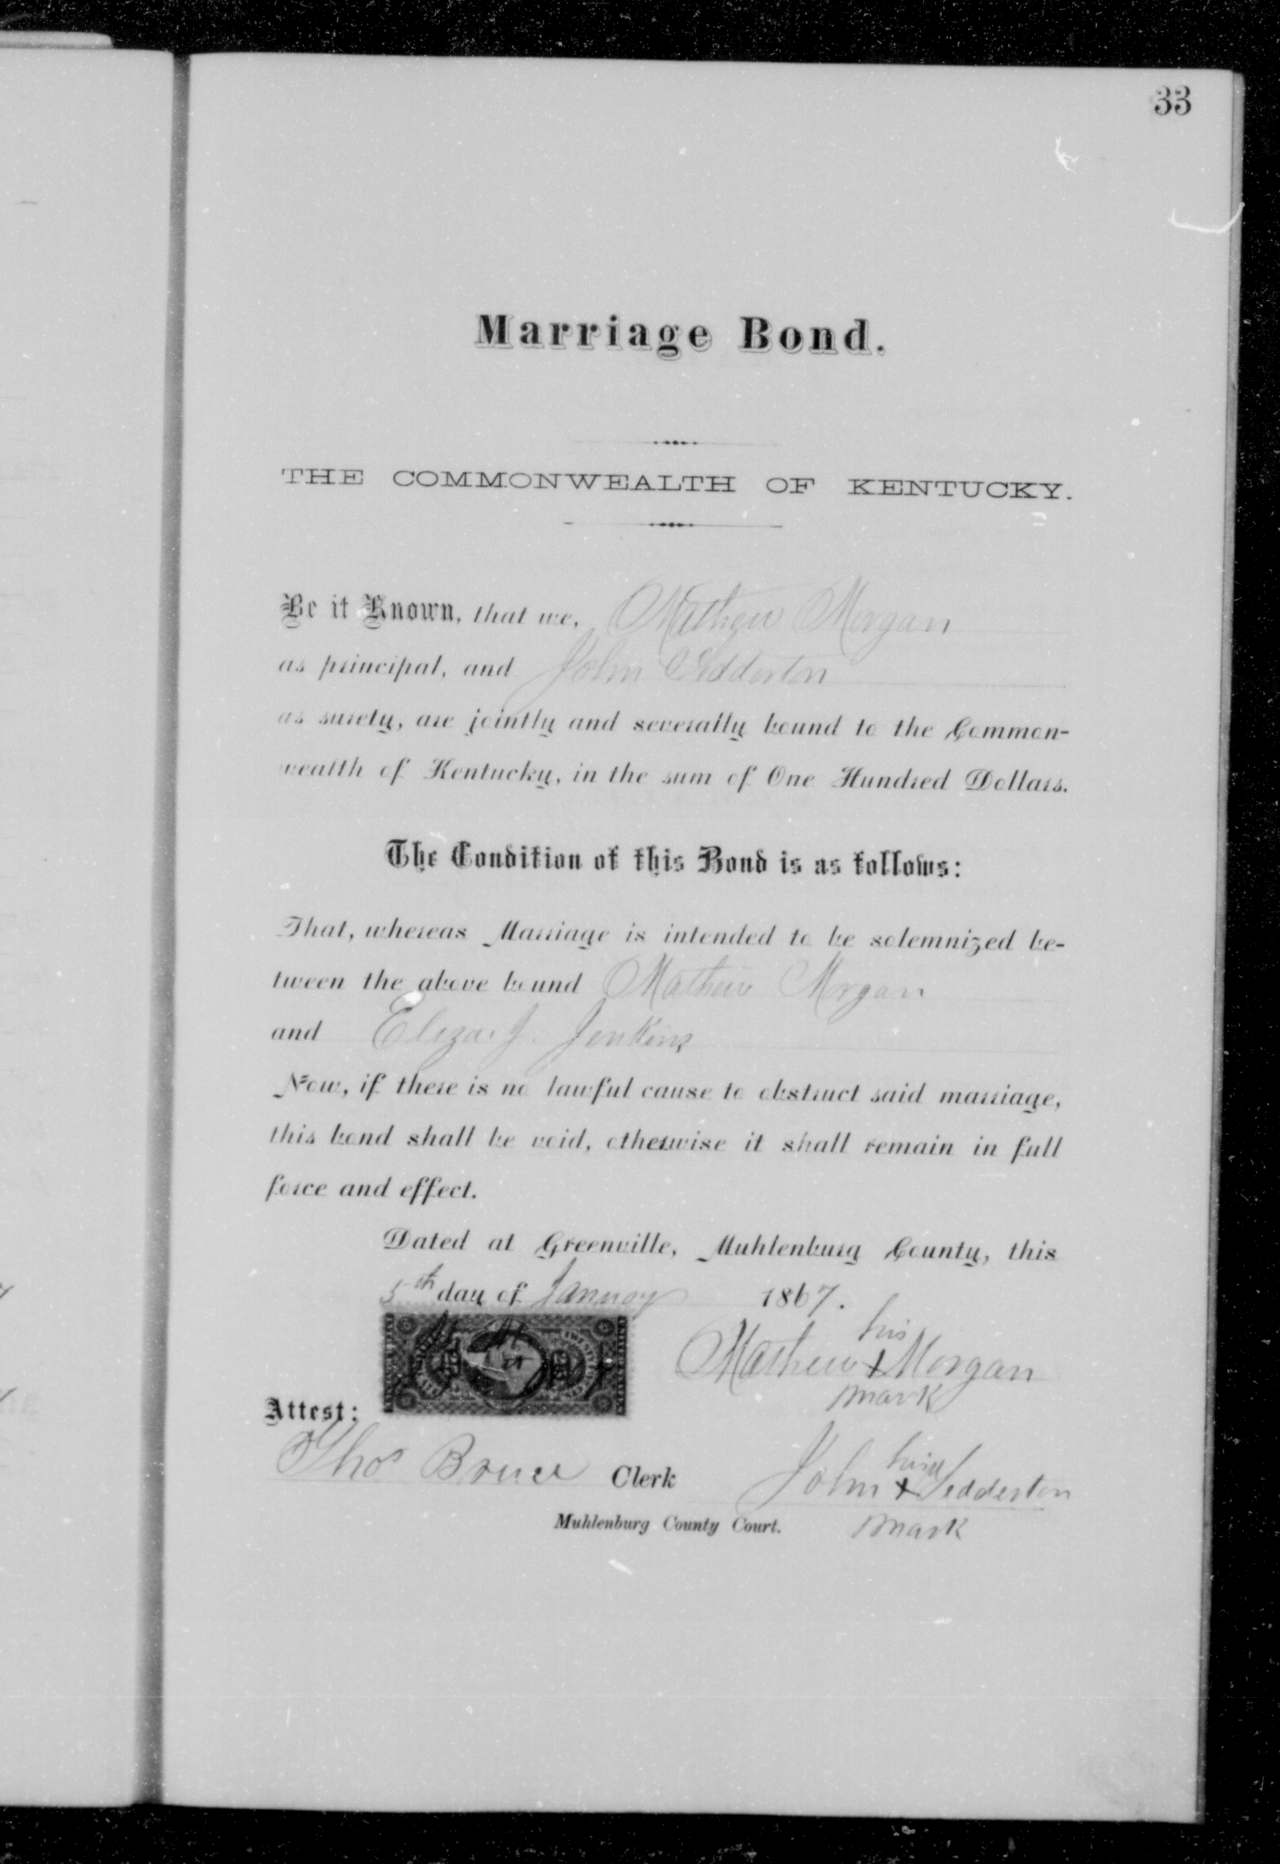 33
Marriage Bond.
THE COMMONWEALTH OF KENTUCKY.
Be it Known, that we, Mathew Morgan
as principal, and John Tedderton
as surety, are jointly and severally bound to the Common-
wealth of Kentucky, in the sum of One Hundred Dollars.
The Condition of this Bond is as follows:
That, whereas Marriage is intended to be solemnized be-
tween the above bound Mathew Morgan
and Eliza J. Jenkins
Now, if there is no lawful cause to obstruct said marriage,
this bond shall be void, otherwise it shall remain in full
force and effect.
Dated at Greenville, Muhlenburg County, this
5th day of January 1867.
his
Mathew x Morgan
mark
Attest:
Thos Bruce Clerk
his
John x Tedderton
mark
Muhlenburg County Court.